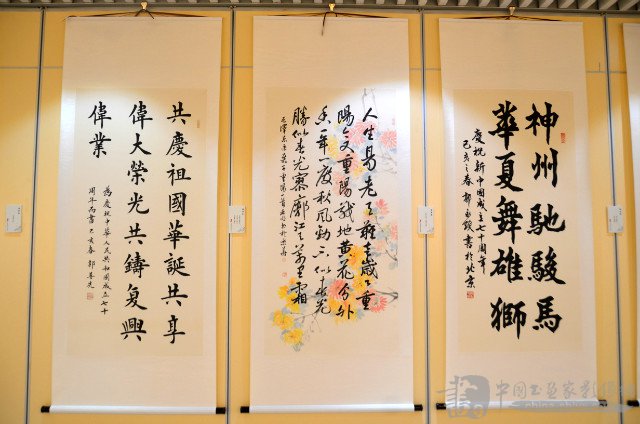 共慶祖國華誕共享
偉大榮光共鑄復興
偉業
為慶祝中華人民共和國成立七十
周年而書己亥春
人生易老天難老歲歲重
陽今又重陽戰地黃花分外
香一年一度秋風勁不似春光
勝似春光寥廓江天萬里霜
毛澤東采桑子重陽
神州馳駿馬
華夏舞雄獅
慶祝新中國成立七十周年
己亥之春 書於北京
中国书画家影像